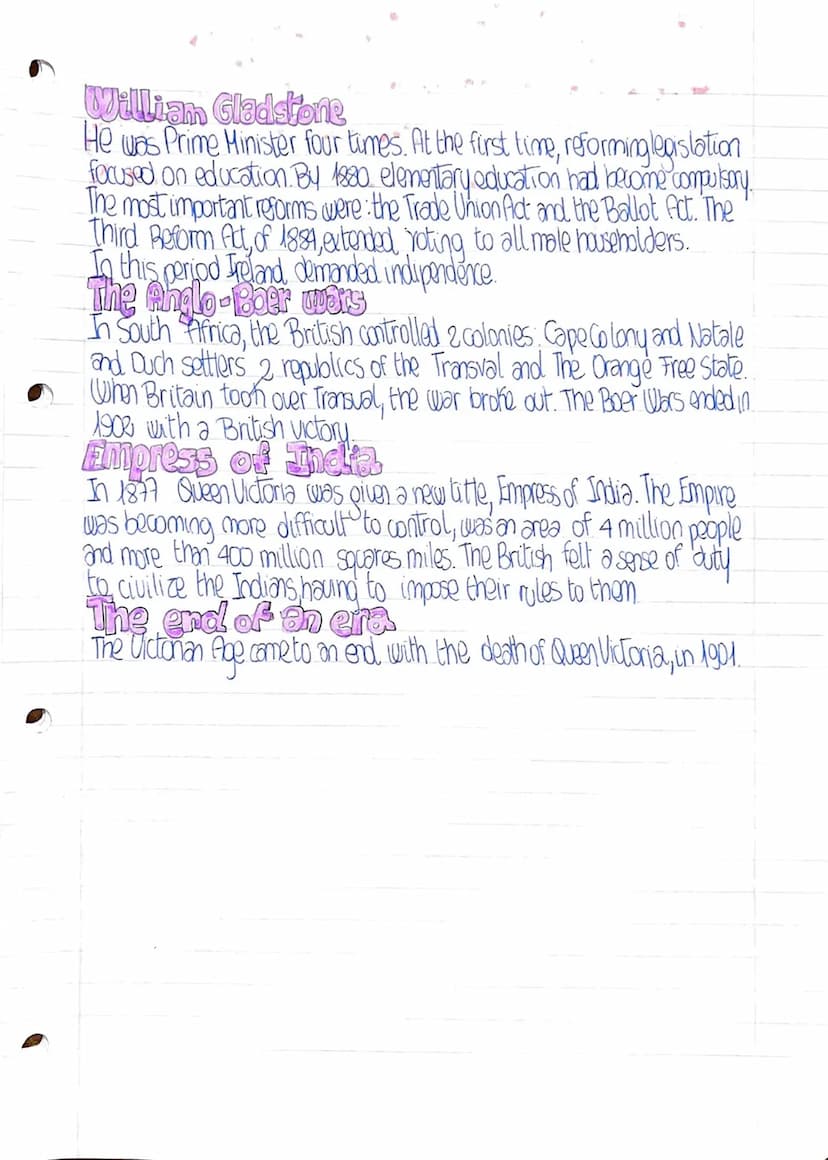 William Gladstone
He was Prime Minister four times. At the first time, reforming legislation
focused on education. By 1880 elementary education had become compulsory.
The most important reforms were: the Trade Union Act and the Ballot Act. The
Third Reform Act, of 1884, extended voting to all male householders.
In this period Ireland demanded indipendence.
The Anglo-Boer wars
In South Africa, the British controlled 2 colonies: Cape Colony and Natale
and Duch settlers 2 republics of the Transval and The Orange Free State.
When Britain took over Transval, the war broke out. The Boer Wars ended in
1902 with a British victory.
Empress of India
In 1877 Queen Victoria was given a new title, Empress of India. The Empire
was becoming more difficult to control, was an area of 4 million people
and more than 400 million squares miles. The British felt a sense of duty
to civilize the Indians, having to impose their rules to them
The end of an era
The Victorian Age came to an end with the death of Queen Victoria, in 1901.